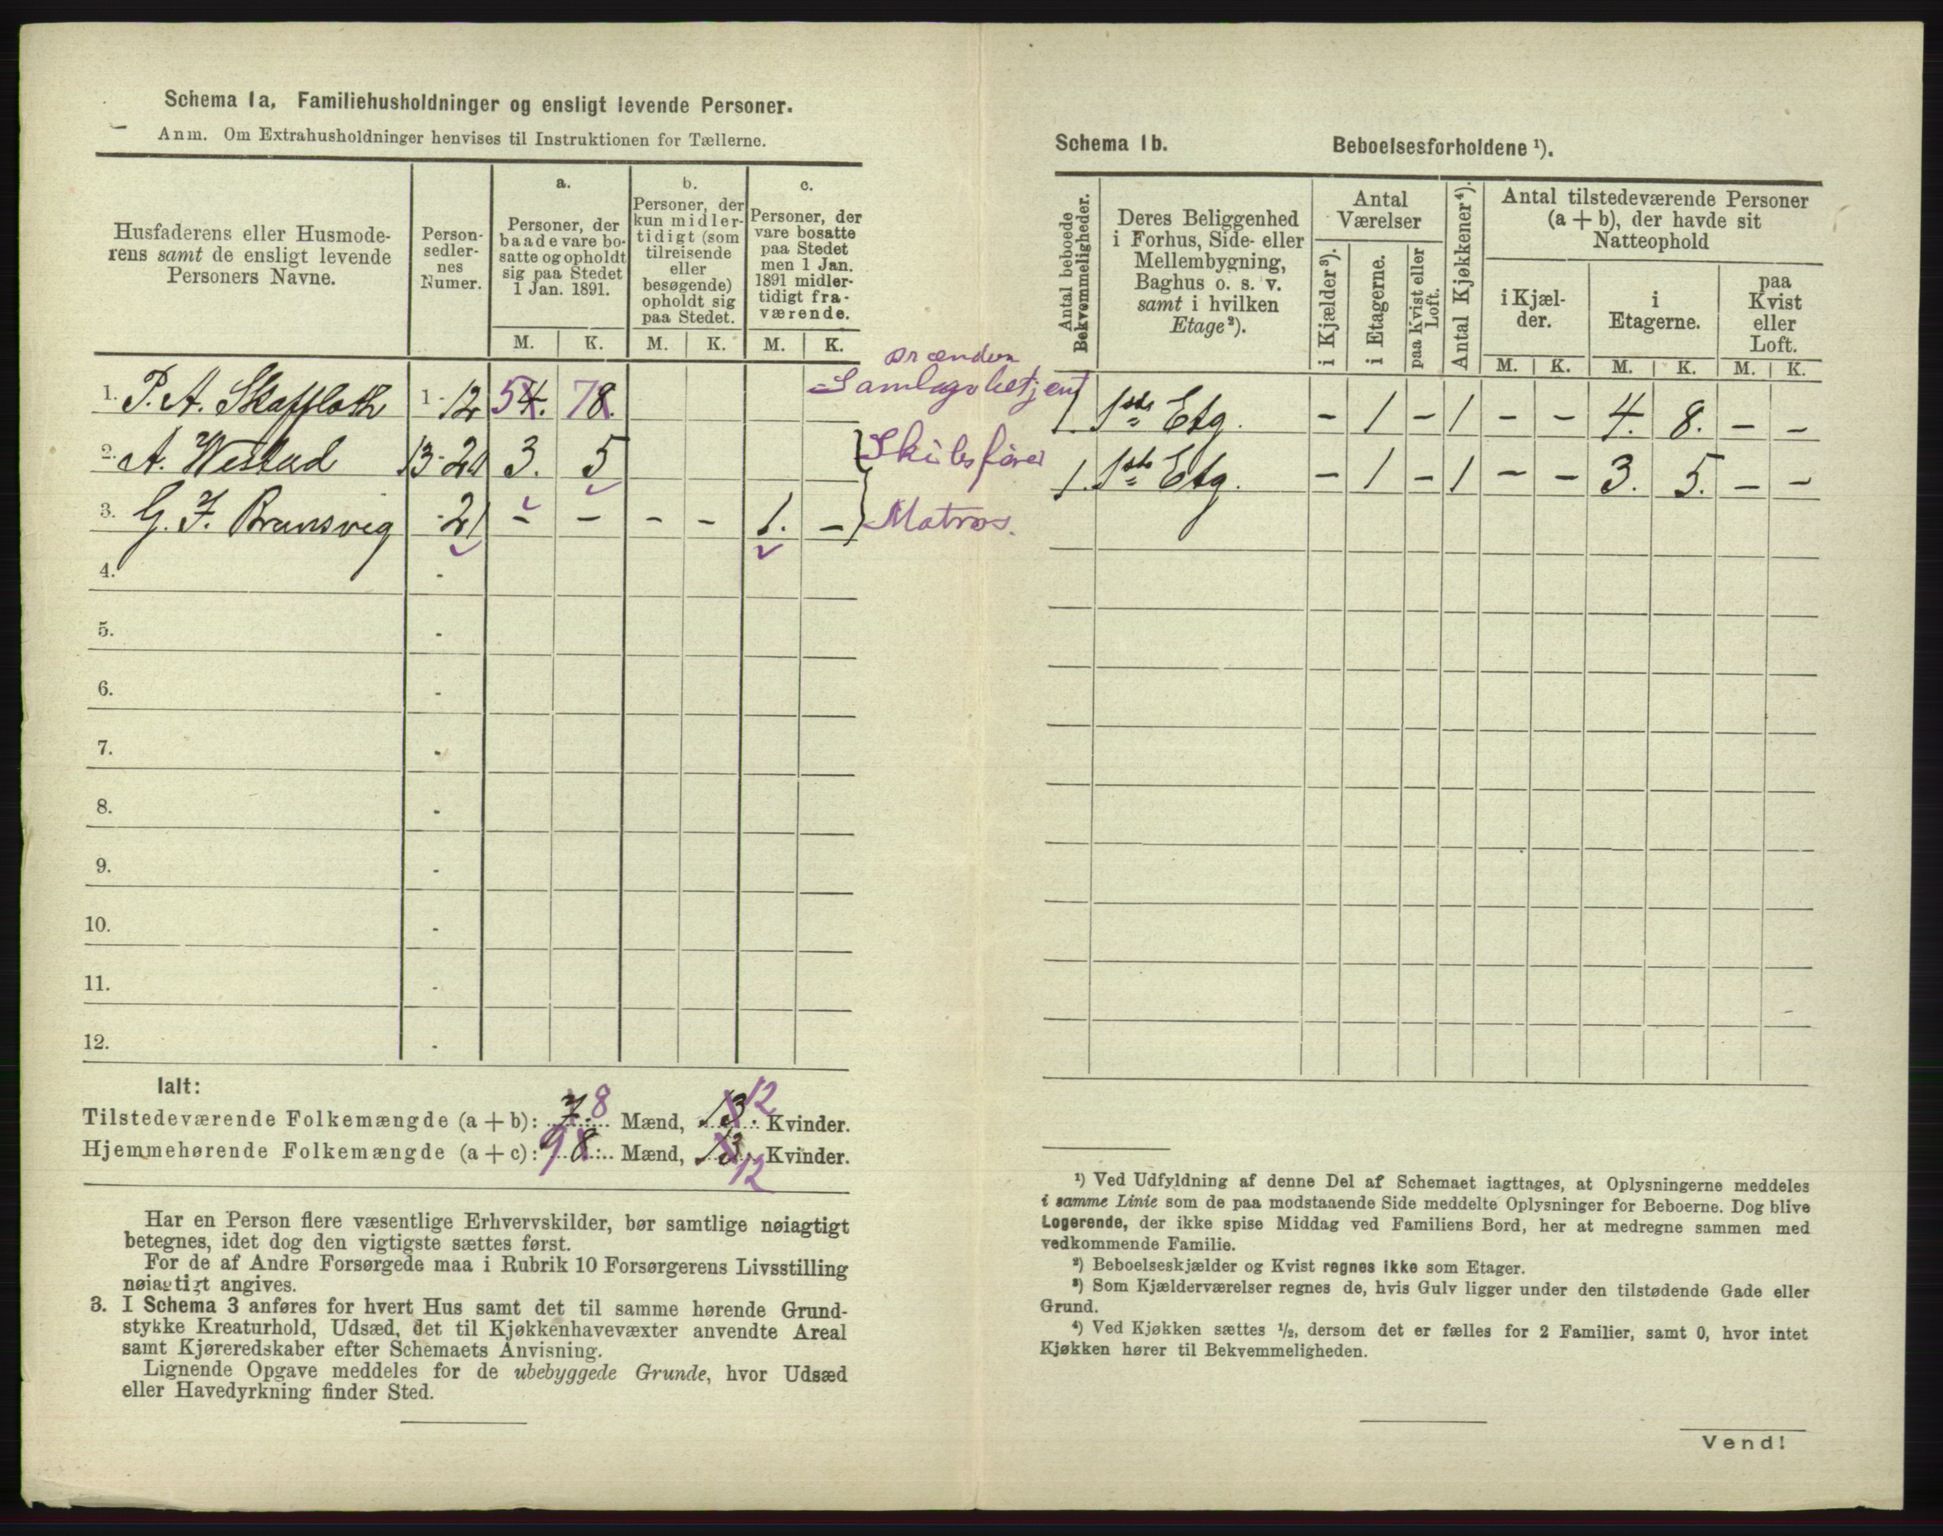 Schema 1a, Familiehusholdninger og ensligt levende Personer.
Anm. Om Extrahusholdninger henvises til Instruktionen for Tællerne.
Husfaderens eller Husmode-
rens samt de ensligt levende
Personers Navne.
Person-
sedler-
nes
Numer.
a.
Personer, der
baade vare bo-
satte og opholdt
sig paa Stedet
1 Jan. 1891.
b.
Personer, der
kun midler-
tidigt (som
tilreisende
eller
besøgende)
opholdt sig
paa Stedet.
c.
Personer, der
vare bosatte
paa Stedet
men 1 Jan.
1891 midler-
tidigt fra-
værende.
M. K. M. K. M. K.
1. P. A. Skaffloth 1-12 54. 78.
Samlagsbetjent
2. A. Westad 13-20 3. 5
3. G. F. Brunsvig -21 - - - - 1. - Matros.
4. -
5. -
6. -
7. -
8. -
9. -
10. -
11. -
12. -
Ialt:
Tilstedeværende Folkemængde (a + b): 7. 8 Mænd, 13. 12 Kvinder.
Hjemmehørende Folkemængde (a + c): 9 8 Mænd, 13 12 Kvinder.
Har en Person flere væsentlige Erhvervskilder, bør samtlige nøiagtigt
betegnes, idet dog den vigtigste sættes først.
For de af Andre Forsørgede maa i Rubrik 10 Forsørgerens Livsstilling
nøiagtigt angives.
3. I Schema 3 anføres for hvert Hus samt det til samme hørende Grund-
stykke Kreaturhold, Udsæd, det til Kjøkkenhavevæxter anvendte Areal
samt Kjøreredskaber efter Schemaets Anvisning.
Lignende Opgave meddeles for de ubebyggede Grunde, hvor Udsæd
eller Havedyrkning finder Sted.
Schema 1b. Beboelsesforholdene ¹).
Antal beboede
Bekvemmeligheder.
Deres Beliggenhed
i Forhus, Side- eller
Mellembygning,
Baghus o. s. v.
samt i hvilken
Etage²).
Antal
Værelser
i Kjælder³).
i Etagerne.
paa Kvist eller
Loft.
Antal Kjøkkener⁴).
Antal tilstedeværende Personer
(a + b), der havde sit
Natteophold
i Kjæl-
der.
i
Etagerne.
paa
Kvist
eller
Loft.
M. K. M. K. M. K.
1. 1ste Etg. - 1 - 1 - - 4. 8. - -
1. 1ste Etg. - 1 - 1 - - 3. 5. - -
¹) Ved Udfyldning af denne Del af Schemaet iagttages, at Oplysningerne meddeles
i samme Linie som de paa modstaaende Side meddelte Oplysninger for Beboerne. Dog blive
Logerende, der ikke spise Middag ved Familiens Bord, her at medregne sammen med
vedkommende Familie.
²) Beboelseskjælder og Kvist regnes ikke som Etager.
³) Som Kjælderværelser regnes de, hvis Gulv ligger under den tilstødende Gade eller
Grund.
⁴) Ved Kjøkken sættes ½, dersom det er fælles for 2 Familier, samt 0, hvor intet
Kjøkken hører til Bekvemmeligheden.
Vend!